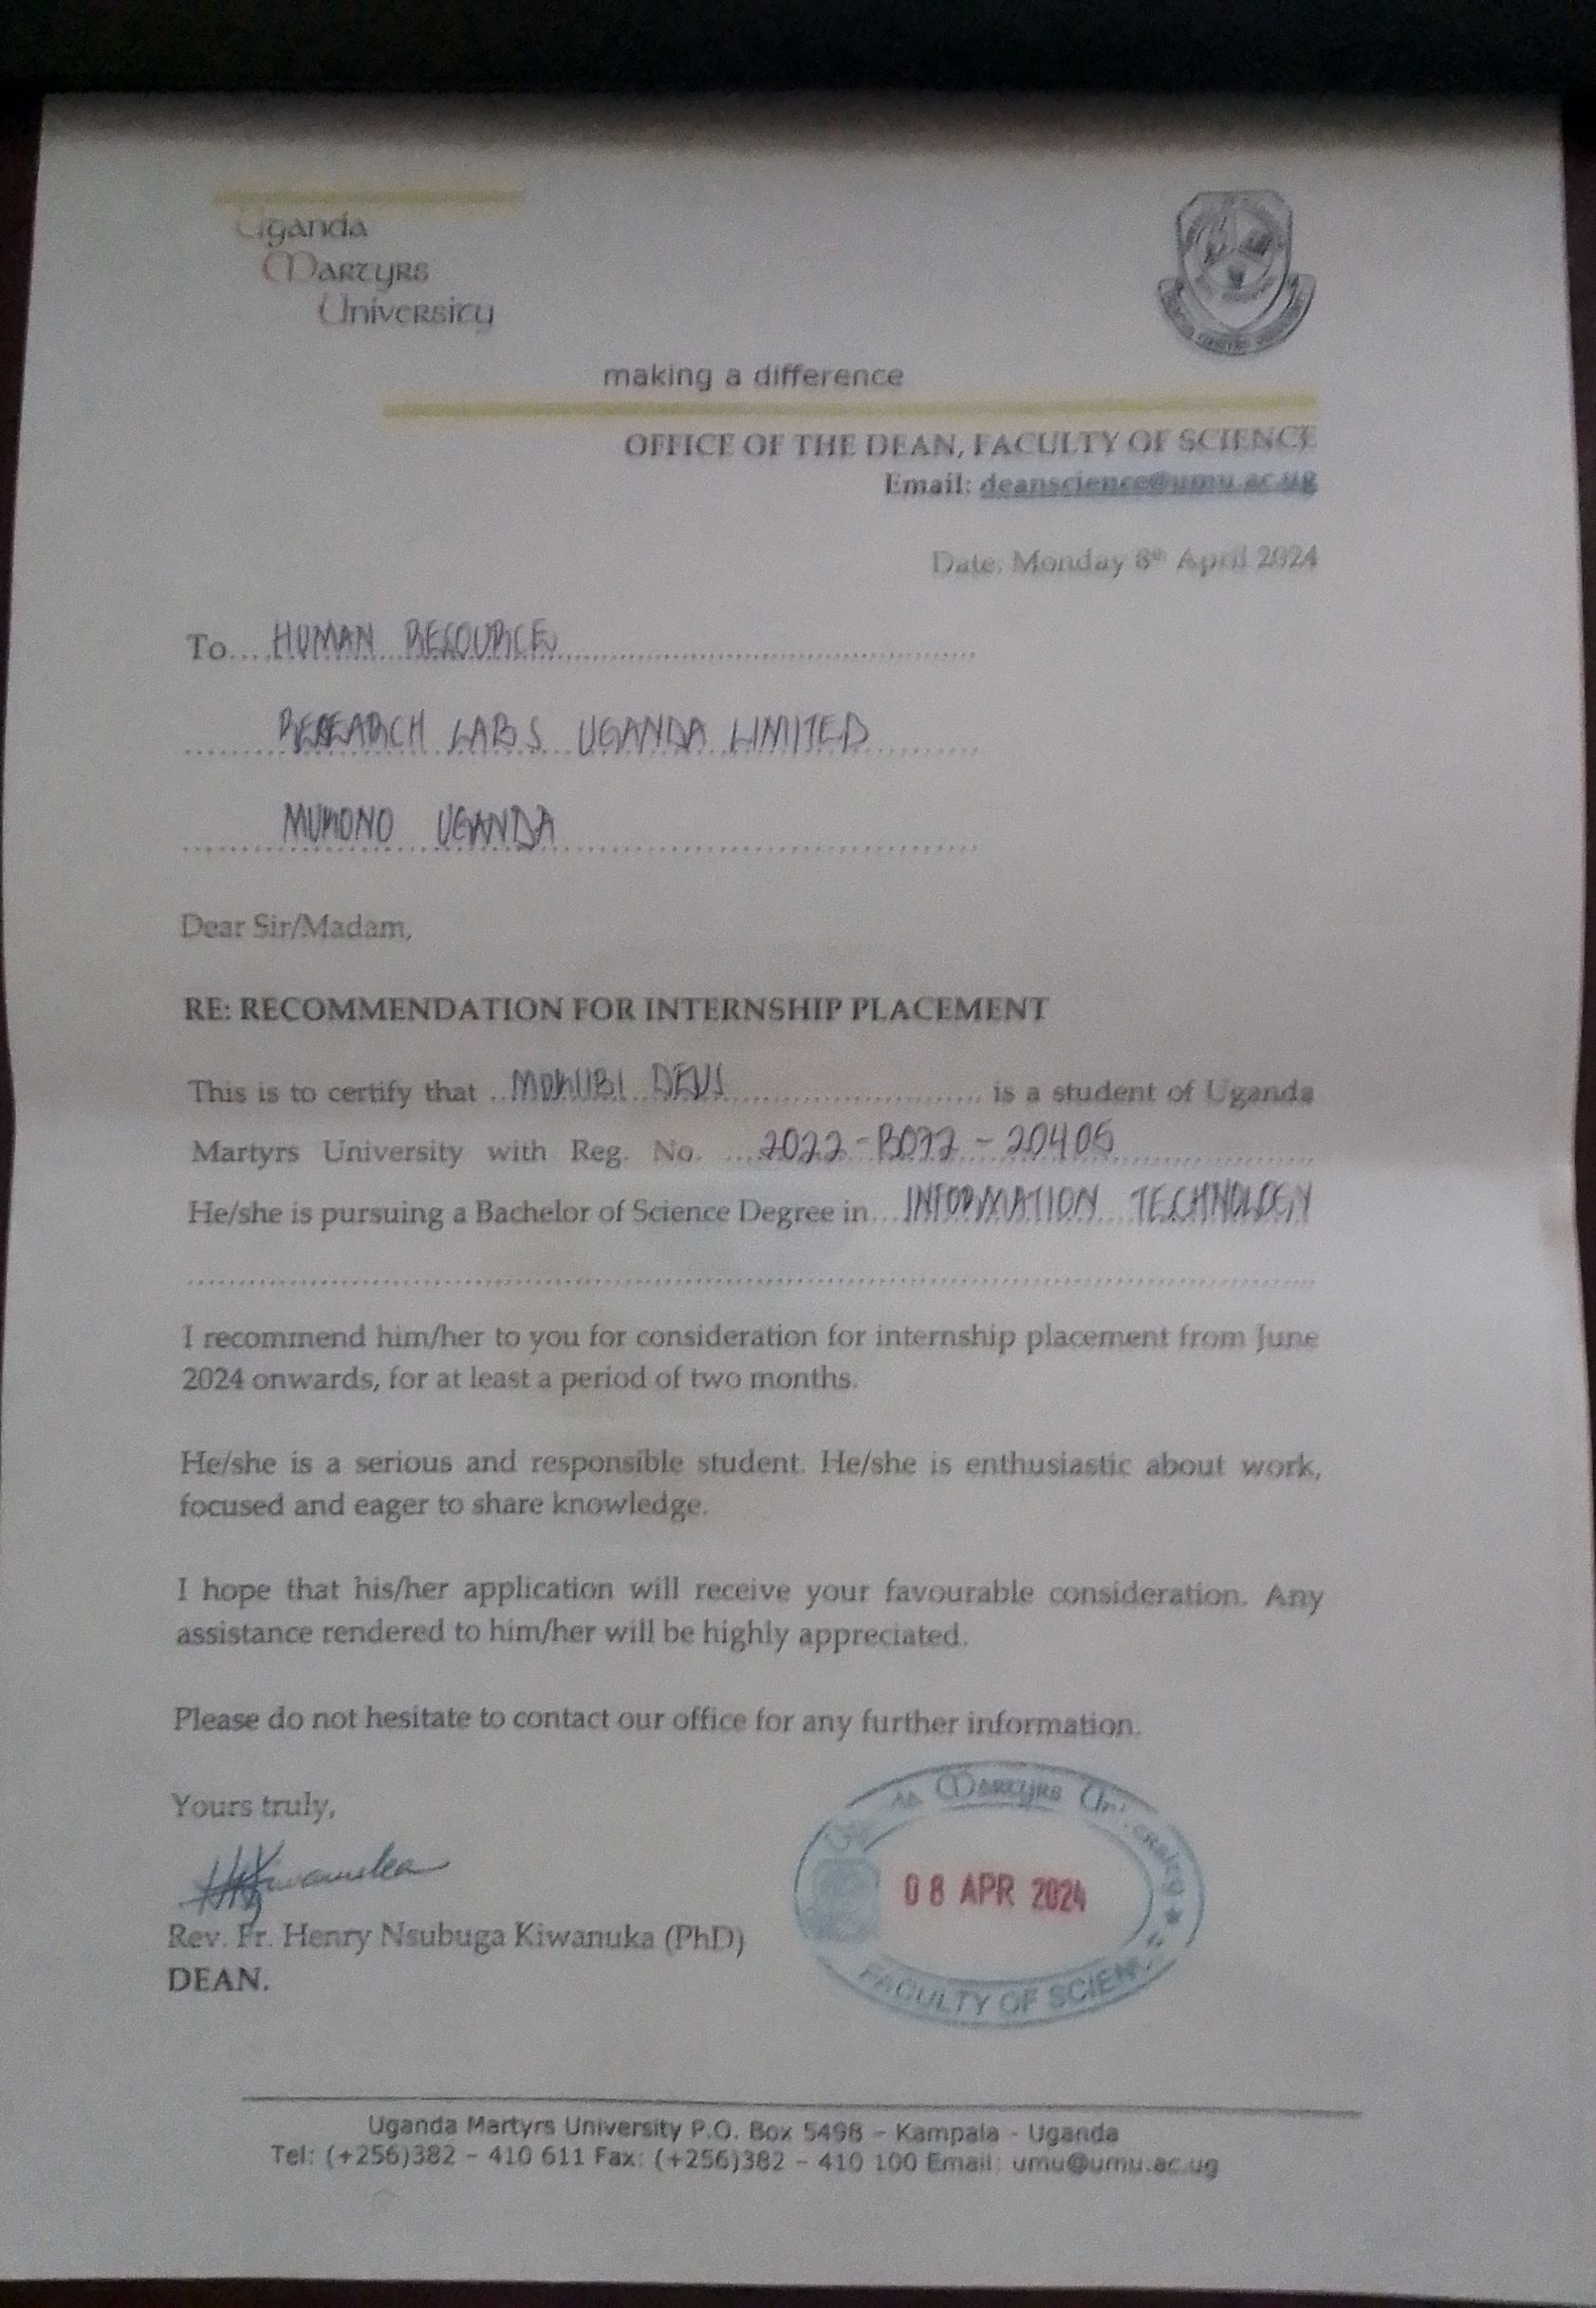 Uganda
Martyrs
University
making a difference
OFFICE OF THE DEAN, FACULTY OF SCIENCE
Email: deanscience@umu.ac.ug
Date: Monday 8th April 2024
To.... HUMAN RESOURCE
RESEARCH LABS UGANDA LIMITED
MUKONO UGANDA
Dear Sir/Madam,
RE: RECOMMENDATION FOR INTERNSHIP PLACEMENT
This is to certify that ...MOKUBI DEUS... is a student of Uganda
Martyrs University with Reg. No. ...2022-B072-20405...
He/she is pursuing a Bachelor of Science Degree in... INFORMATION TECHNOLOGY
I recommend him/her to you for consideration for internship placement from June
2024 onwards, for at least a period of two months.
He/she is a serious and responsible student. He/she is enthusiastic about work,
focused and eager to share knowledge.
I hope that his/her application will receive your favourable consideration. Any
assistance rendered to him/her will be highly appreciated.
Please do not hesitate to contact our office for any further information.
Yours truly,
Rev. Fr. Henry Nsubuga Kiwanuka (PhD)
DEAN.
Martyrs University
08 APR 2024
FACULTY OF SCIENCE
Uganda Martyrs University P.O. Box 5498 – Kampala - Uganda
Tel: (+256)382 – 410 611 Fax: (+256)382 – 410 100 Email: umu@umu.ac.ug